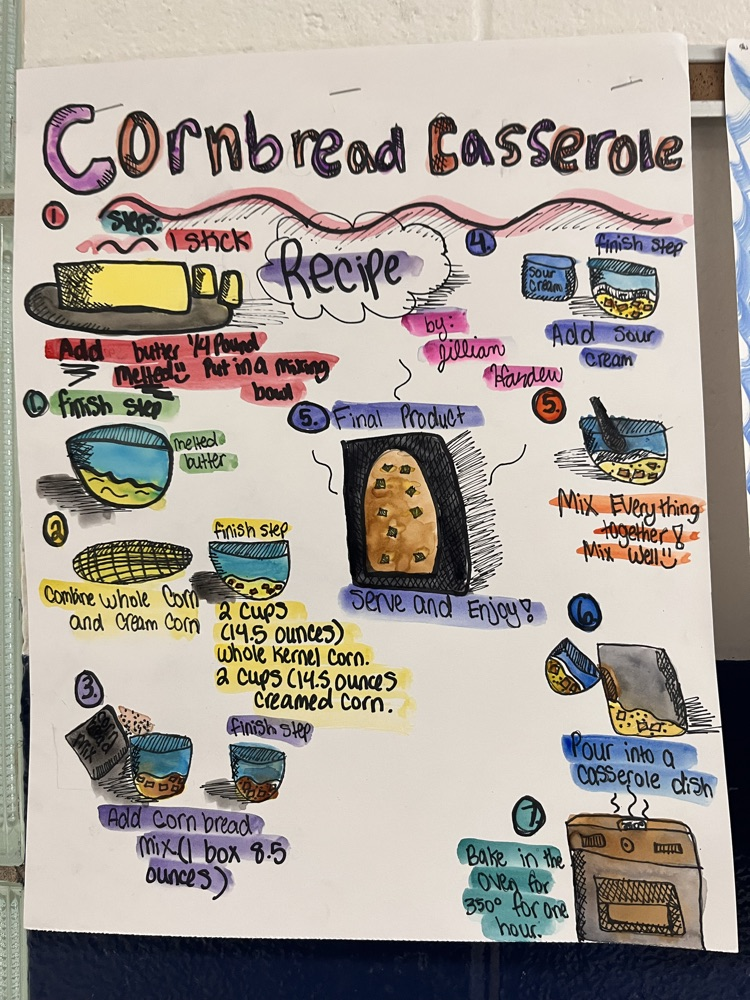 Cornbread Casserole
Recipe
by:
Jillian
1
Steps:
1 stick
Add butter 1/4 Pound
Melted Put in a mixing
bowl
1.
finish step
melted
butter
2
Combine whole Corn
and Cream Corn
finish step
2 cups
(14.5 ounces)
whole kernel corn.
2 cups (14.5 ounces
creamed corn.
3.
Mix
finish step
Add corn bread
mix (1 box 8.5
ounces)
4.
finish step
Sour
Cream
Add sour
cream
5.
Mix Everything
together!
Mix Well
6
Pour into a
casserole dish
7.
Bake in the
Oven for
350° for one
hour.
5.
Final Product
Serve and Enjoy!